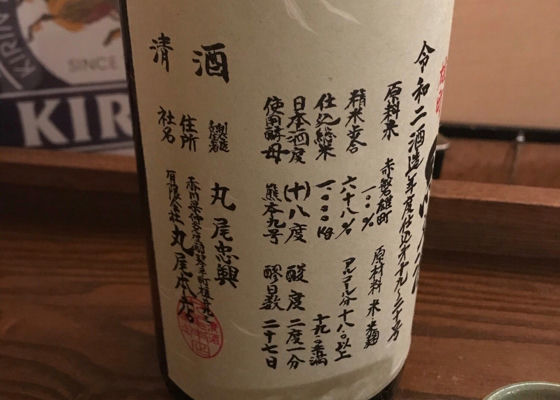 令和二酒造年度仕込第十九、二十号
原料米 赤磐雄町
一〇〇%
原材料 米 米麹
精米歩合 六十八%
アルコール分 十八%以上
十九%未満
仕込総米 一〇〇〇kg
日本酒度 (+)八度 酸度 二度一分
使用酵母 熊本九号 醪日数 二十七日
清酒
丸尾忠興
住所
社名 有限会社 丸尾本店
KIRIN
SINCE
KIR